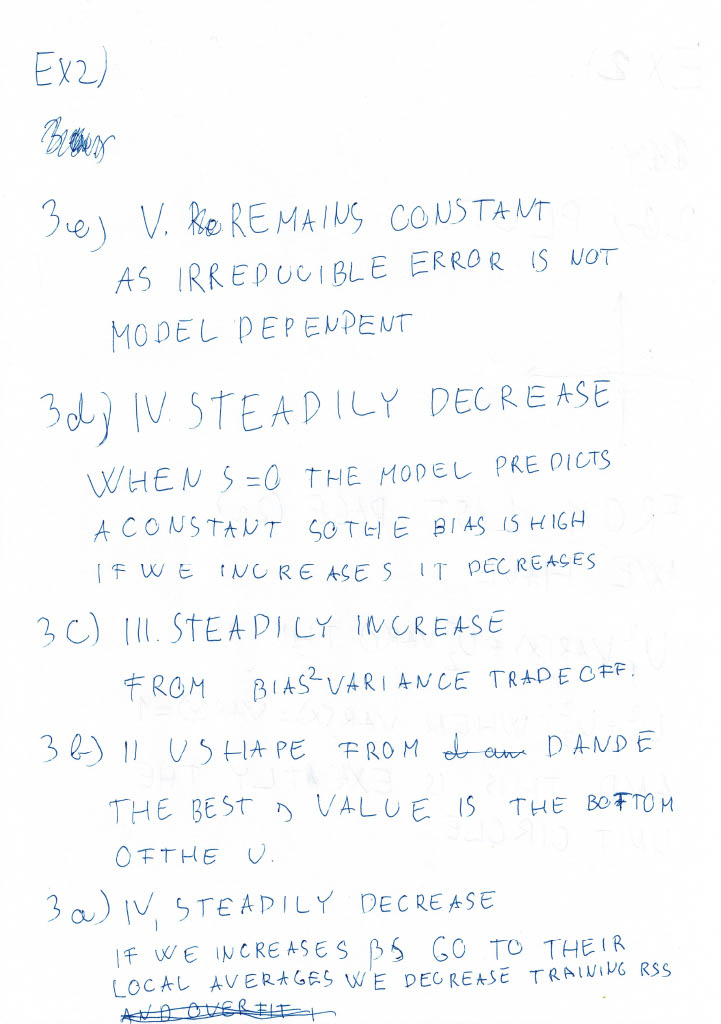 EX2)
3e) V. REMAINS CONSTANT
AS IRREDUCIBLE ERROR IS NOT
MODEL DEPENDENT
3d) IV. STEADILY DECREASE
WHEN S=0 THE MODEL PREDICTS
A CONSTANT SO THE BIAS IS HIGH
IF WE INCREASE S IT DECREASES
3C) III. STEADILY INCREASE
FROM BIAS² VARIANCE TRADEOFF.
3b) II U SHAPE FROM D AND E
THE BEST VALUE IS THE BOTTOM
OF THE U.
3a) IV, STEADILY DECREASE
IF WE INCREASE S βS GO TO THEIR
LOCAL AVERAGES WE DECREASE TRAINING RSS
AND OVERFIT